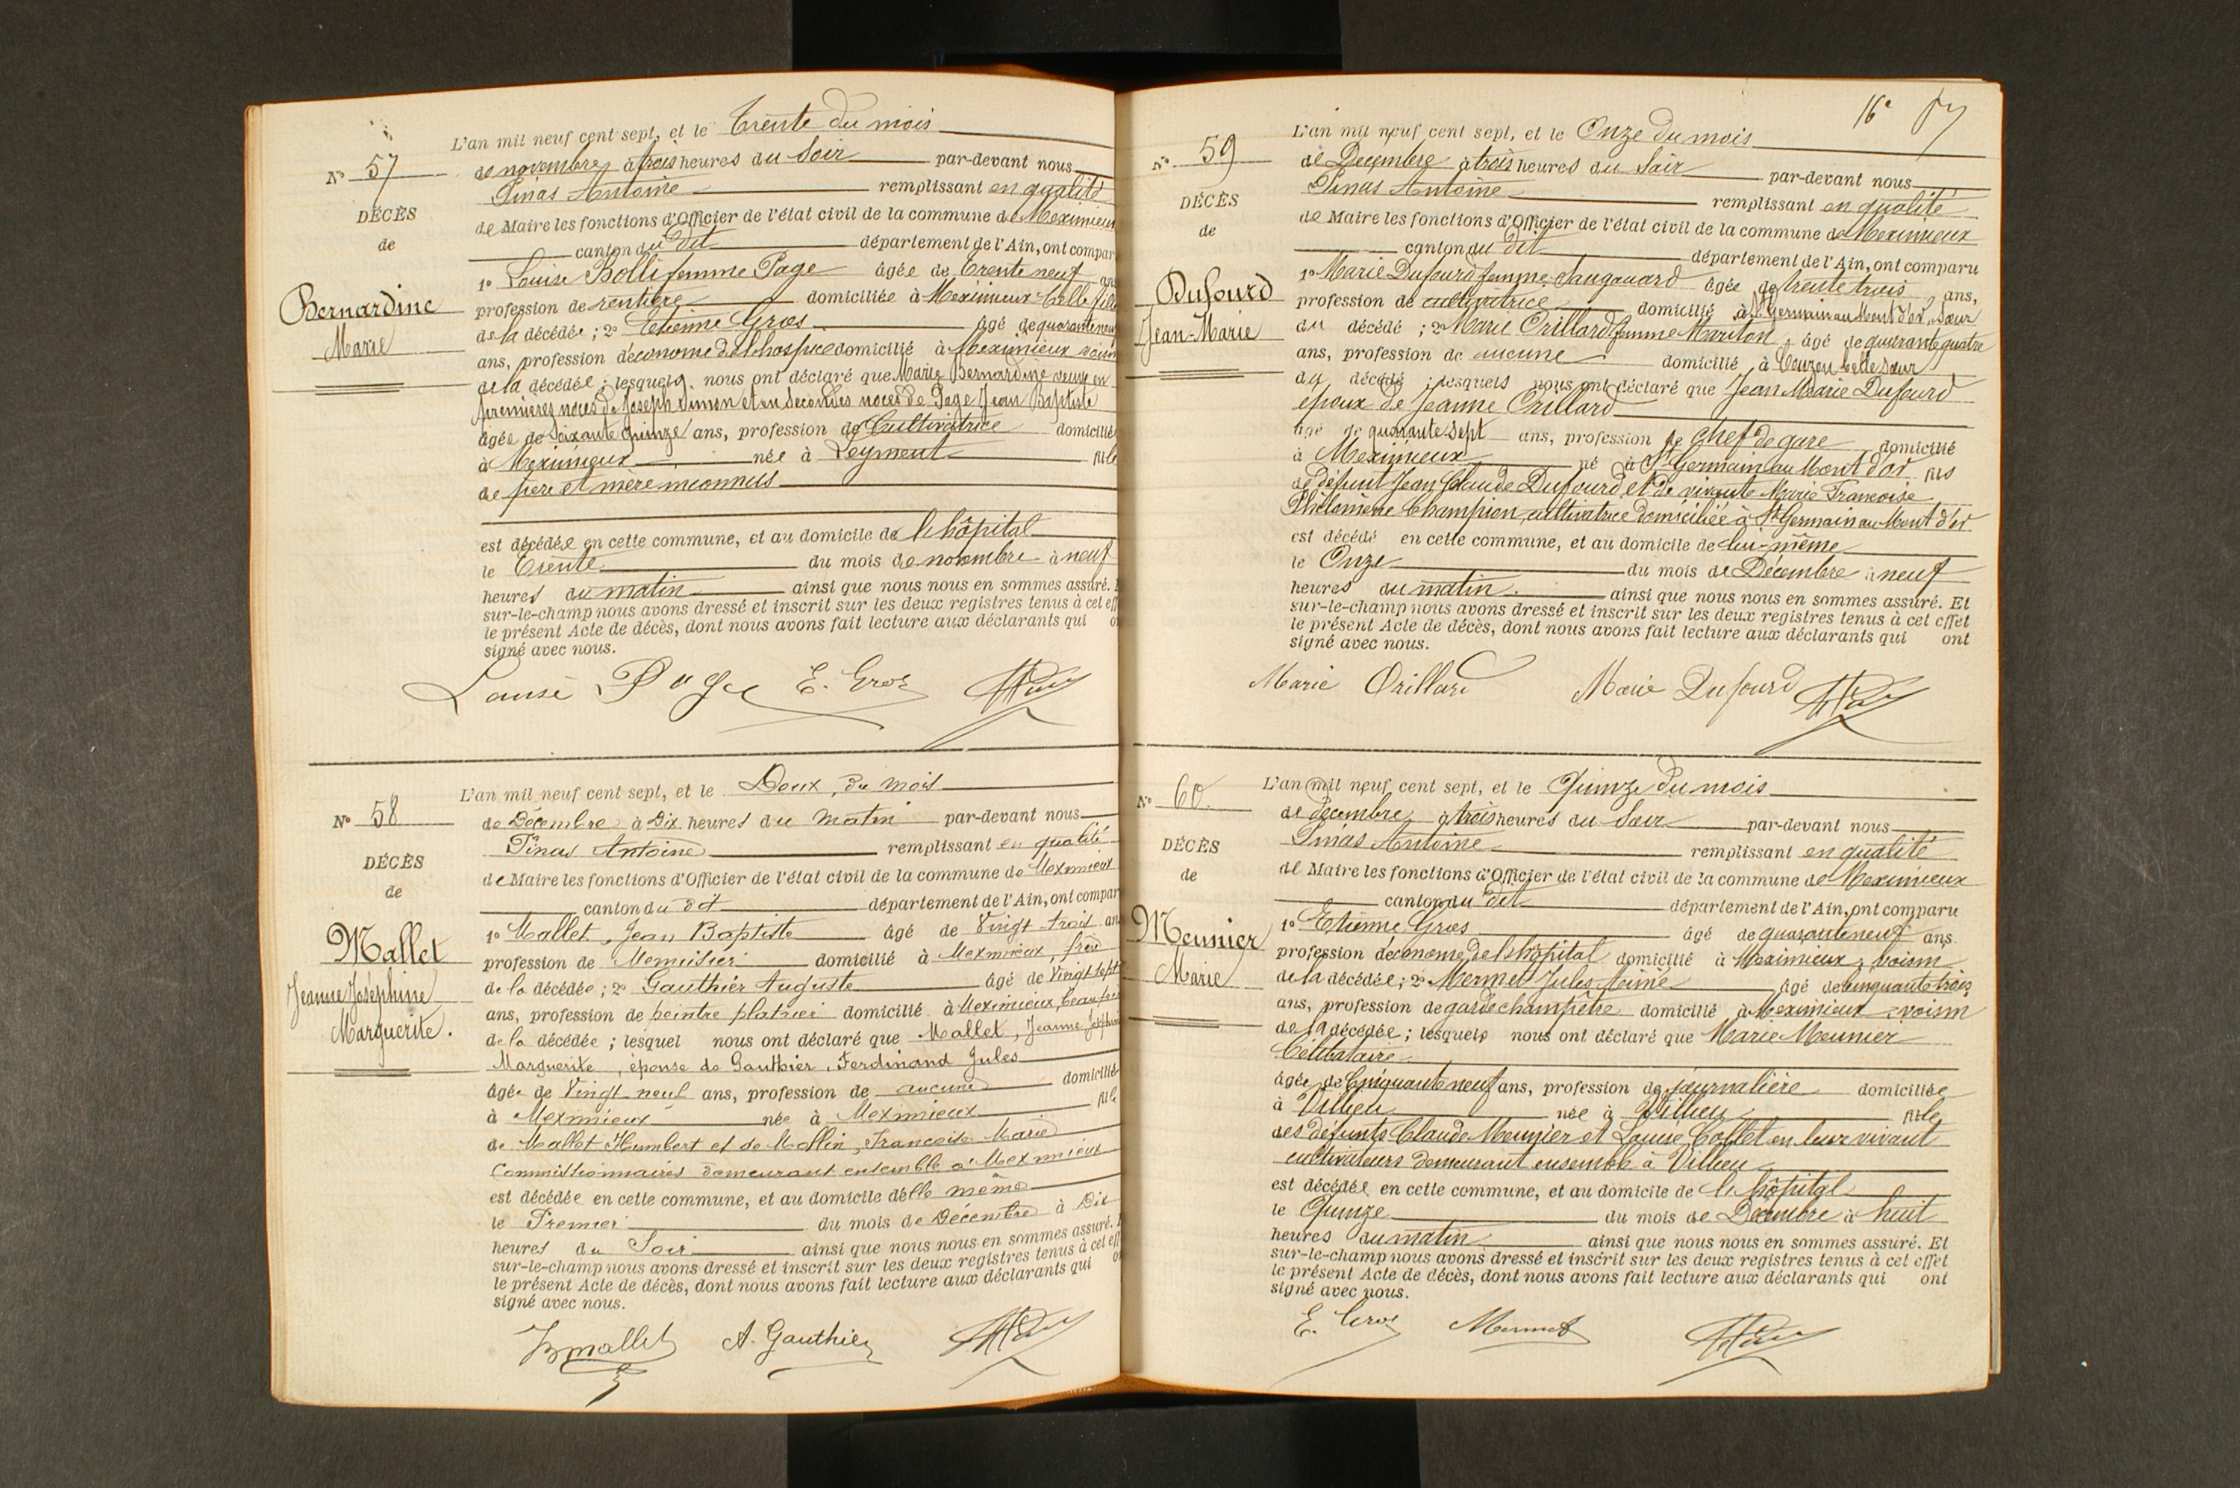 N° 57
DÉCÈS
de
Bernardine
Marie
L'an mil neuf cent sept, et le Trente du mois
de novembre, à trois heures du Soir par-devant nous
Pinas Antoine remplissant en qualité
de Maire les fonctions d'Officier de l'état civil de la commune de Meximieux
canton du dit département de l'Ain, ont compar
1° Louise femme Page âgée de trente neuf ans
profession de rentière domiciliée à Meximieux belle fille
de la décédée ; 2° Etienne Gros âgé de quarante neuf
ans, profession d'économe de l'hospice domicilié à Meximieux voisin
de la décédée ; lesquels nous ont déclaré que Marie Bernardine veuve en
premières noces de Joseph Simon et en secondes noces de Page Jean Baptiste
âgée de soixante quinze ans, profession de Cultivatrice domiciliée
à Meximieux née à Leyment fille
de père et mère inconnus
est décédée en cette commune, et au domicile de l'hôpital
le Trente du mois de novembre à neuf
heures du matin ainsi que nous nous en sommes assuré.
sur-le-champ nous avons dressé et inscrit sur les deux registres tenus à cet eff
le présent Acte de décès, dont nous avons fait lecture aux déclarants qui
signé avec nous.
Louise Page E. Gros
N° 58
DÉCÈS
de
Mallet
Jeanne Joséphine
Marguerite.
L'an mil neuf cent sept, et le Deux, du mois
de Décembre à Dix heures du matin par-devant nous
Pinas Antoine remplissant en qualité
de Maire les fonctions d'Officier de l'état civil de la commune de Meximieux
canton du dit département de l'Ain, ont compar
1° Mallet, Jean Baptiste âgé de Vingt trois ans
profession de Menuisier domicilié à Meximieux, frère
de la décédée ; 2° Gauthier Auguste âgé de Vingt sept
ans, profession de peintre platrier domicilié à Meximieux, beau frère
de la décédée ; lesquel nous ont déclaré que Mallet, Jeanne Joséphine
Marguerite, épouse de Gauthier, Ferdinand Jules
âgée de Vingt neuf ans, profession de aucune domiciliée
à Meximieux née à Meximieux fille
de Mallet Humbert et de Mollin, Françoise Marie
Commissionnaires demeurant ensemble à Meximieux
est décédée en cette commune, et au domicile d'elle même
le Premier du mois de Décembre à Dix
heures du Soir ainsi que nous nous en sommes assuré.
sur-le-champ nous avons dressé et inscrit sur les deux registres tenus à cet eff
le présent Acte de décès, dont nous avons fait lecture aux déclarants qui
signé avec nous.
JB mallet A. Gauthier
16e
N° 59
DÉCÈS
de
Dufourd
Jean-Marie
L'an mil neuf cent sept, et le Onze du mois
de Décembre à trois heures du Soir par-devant nous
Pinas Antoine remplissant en qualité
de Maire les fonctions d'Officier de l'état civil de la commune de Meximieux
canton du dit département de l'Ain, ont comparu
1° Marie Dufourd femme âgée de trente trois ans,
profession de cultivatrice domicilié à St Germain au Mont d'or, sœur
du décédé ; 2° Marie Orillard femme Mariton âgé de quarante quatre
ans, profession de aucune domicilié à belle sœur
du décédé ; lesquels nous ont déclaré que Jean Marie Dufourd
époux de Jeanne Orillard
âgé de quarante sept ans, profession de chef de gare domicilié
à Meximieux né à St Germain au Mont d'or fils
de défunt Jean Claude Dufourd et de vivante Marie Françoise
Philomène Champion, cultivatrice domiciliée à St Germain au Mont d'or
est décédé en cette commune, et au domicile de lui-même
le Onze du mois de Décembre à neuf
heures du matin. ainsi que nous nous en sommes assuré. Et
sur-le-champ nous avons dressé et inscrit sur les deux registres tenus à cet effet
le présent Acte de décès, dont nous avons fait lecture aux déclarants qui ont
signé avec nous.
Marie Orillard Marie Dufourd
N° 60.
DÉCÈS
de
Meunier
Marie
L'an mil neuf cent sept, et le Quinze du mois
de décembre, à trois heures du Soir par-devant nous
Pinas Antoine remplissant en qualité
de Maire les fonctions d'Officier de l'état civil de la commune de Meximieux
canton du dit département de l'Ain, ont comparu
1° Etienne Gros âgé de quarante neuf ans
profession d'économe de l'hôpital domicilié à Meximieux, voisin
de la décédée ; 2° Mermet Jules Aimé âgé de cinquante trois
ans, profession de garde champêtre domicilié à Meximieux voisin
de la décédée ; lesquels nous ont déclaré que Marie Meunier
Célibataire
âgée de Cinquante neuf ans, profession de journalière domiciliée
à Villieu née à Villieu fille
des défunts Claude Meunier et Louise Collet en leur vivant
cultivateurs demeurant ensemble à Villieu
est décédée en cette commune, et au domicile de l'hôpital
le Quinze du mois de Décembre à huit
heures du matin ainsi que nous nous en sommes assuré. Et
sur-le-champ nous avons dressé et inscrit sur les deux registres tenus à cet effet
le présent Acte de décès, dont nous avons fait lecture aux déclarants qui ont
signé avec nous.
E. Gros Mermet